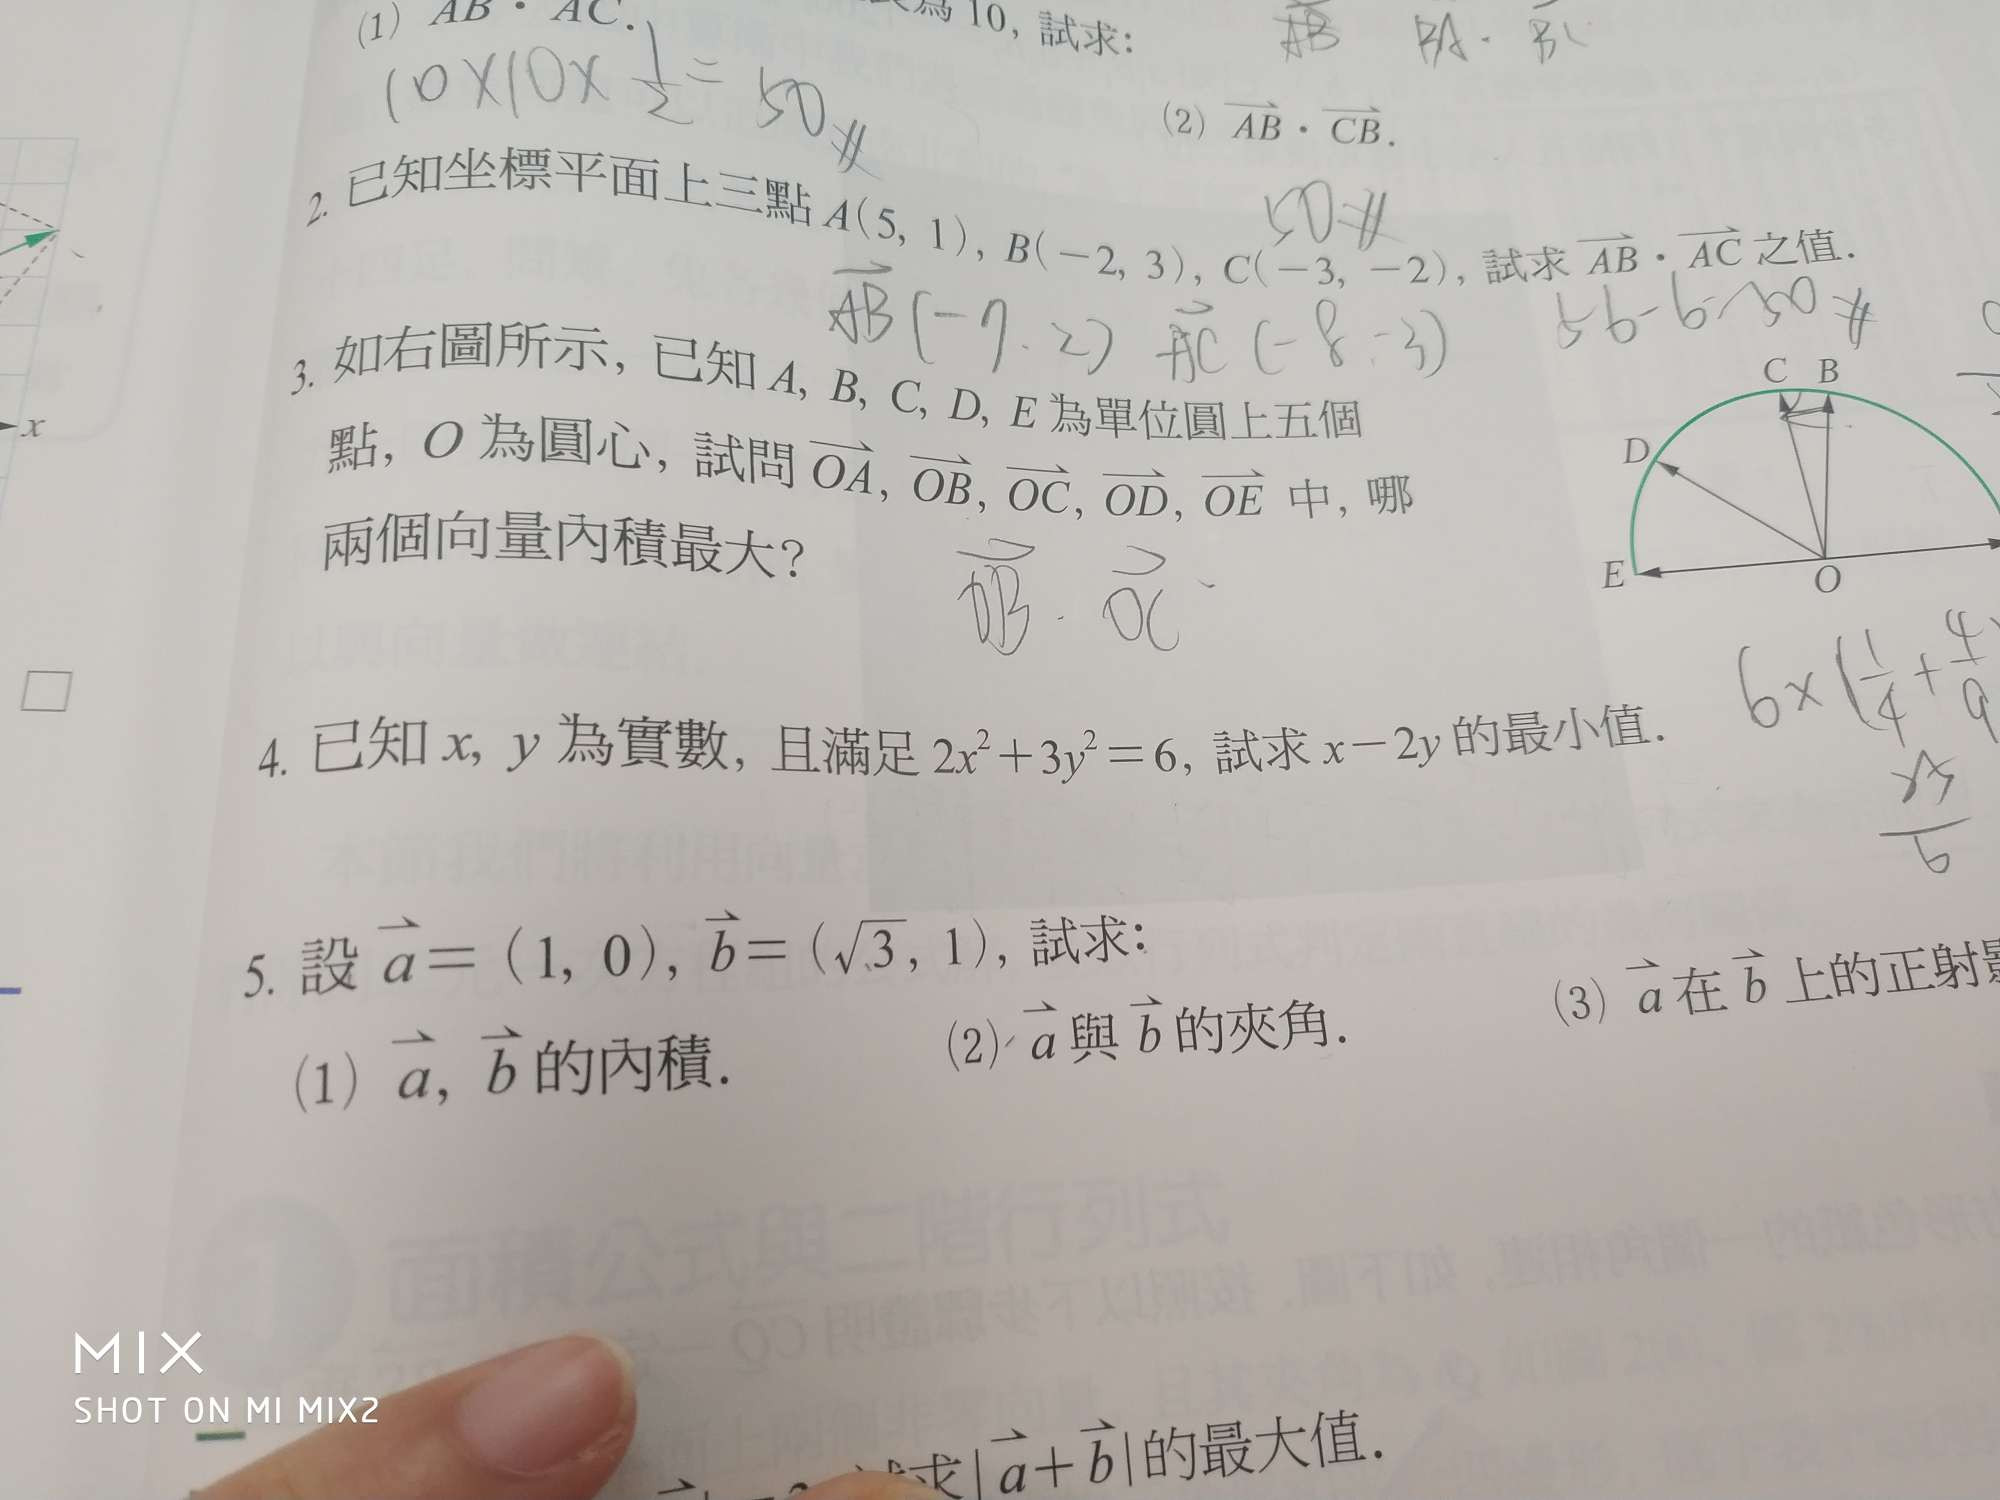 (1) AB · AC.
為 10, 試求:
AB BA · BC
10×10×1/2=50
(2) AB · CB.
50
2. 已知坐標平面上三點 A(5, 1), B(−2, 3), C(−3, −2), 試求 AB · AC 之值.
AB (−7, 2) AC (−8, −3)
56−6=50
3. 如右圖所示, 已知 A, B, C, D, E 為單位圓上五個
點, O 為圓心, 試問 OA, OB, OC, OD, OE 中, 哪
兩個向量內積最大?
C B
D
E
O
OB · OC
4. 已知 x, y 為實數, 且滿足 2x²+3y²=6, 試求 x−2y 的最小值.
6×(1/4+4/9
5. 設 a = (1, 0), b = (√3, 1), 試求:
(1) a, b 的內積.
(2) a 與 b 的夾角.
(3) a 在 b 上的正射影
試求 |a+b| 的最大值.
x
MIX
SHOT ON MI MIX2